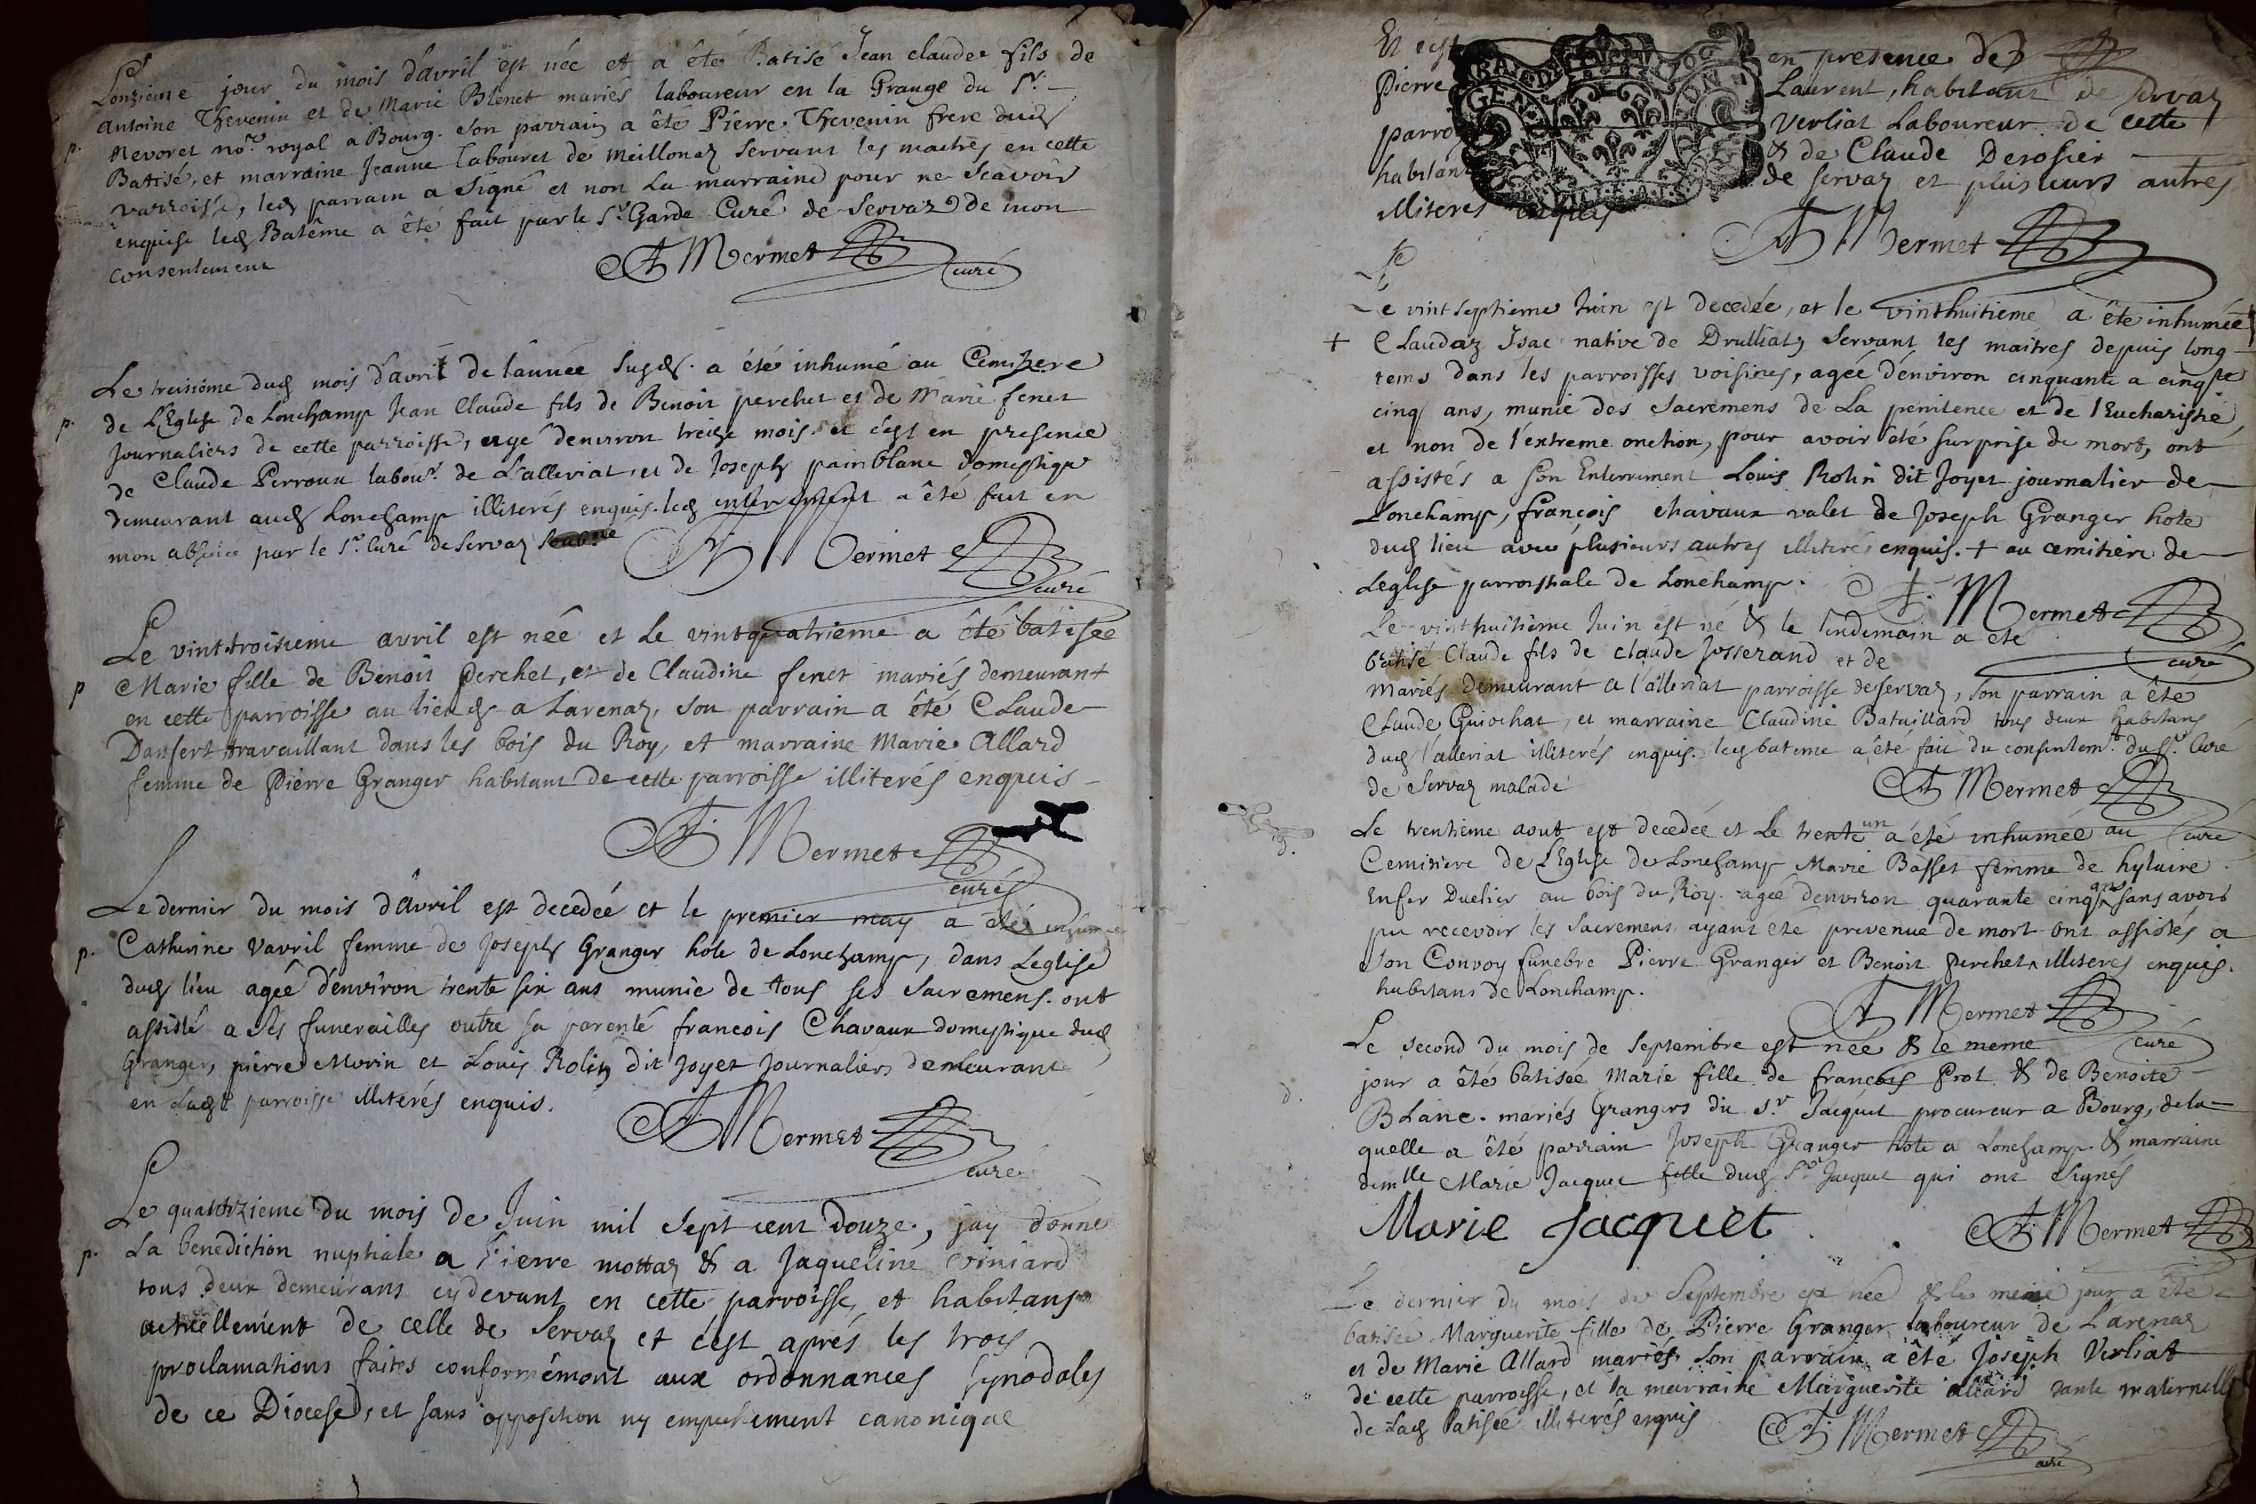 Lonzieme jour du mois davril est née et a été Batisé Jean claude fils de
antoine Thevenin et de Marie Blenet mariés laboureur en la Grange du Sr.
Nevoret nore. royal a Bourg. son parrain a été Pierre Thevenin frere dud
p. Batisé, et marraine Jeanne Labouret de Meillonaz servant les maitres en cette
parroisse, led parrain a signé et non La marraine pour ne scavoir
enquise led Batême a été fait par le Sr. Garde Curé de Servaz de mon
consentement
A Mermet
curé
Le treisiéme dud mois d'avril de l'année susd. a été inhumé au Cemitiere
p. de L'Eglise de Lonchamp Jean Claude fils de Benoit perchet et de Marie fenet
Journaliers de cette parroisse, agé denviron treize mois et c'est en presence
de Claude Perroux labour. de L'alleriat, et de Joseph painblanc domestique
demeurant aud Lonchamp illiterés enquis. led enterrement a été fait en
mon absence par le Sr. Curé de Servaz
A Mermet
curé
Le vint troisieme avril est née et Le vintquatrieme a été batisée
p Marie fille de Benoit Perchet, et de Claudine fenet mariés demeurant
en cette parroisse au lieud a Larenaz, son parrain a été CLaude
Danfert travaillant dans les bois du Roy, et marraine Marie Allard
femme de Pierre Granger habitant de cette parroisse illiterés enquis
A Mermet
curé
Le dernier du mois d'avril est decedée et le premier may a été inhumée
p. Catherine vavril femme de Joseph Granger hote de Lonchamp, dans Leglise
dud lieu agée d'environ trente six ans munie de tous ses Sacremens. ont
assisté a ses funerailles outre sa parenté francois Chavaux domestique dud
Granger, pierre Morin et Louis Rolin dit Joyet Journaliers demeurant
en Lad parroisse illiterés enquis.
A Mermet
curé
Le quattrzieme du mois de Juin mil sept cent douze, jay donné
p. La benediction nuptiale a Pierre mottaz & a Jaqueline Viniard
tous deux demeurans cydevant en cette parroisse, et habitans
actuellement de celle de Servaz et c'est aprés les trois
proclamations faites conformément aux ordonnances synodales
de ce Diocese, et sans opposition ny empechement canonique
Et c'est en presence de
Pierre Laurent, habitant de Servaz
parro Verliat Laboureur de cette
habitant & de Claude Derosier
de servaz et plusieurs autres
illiteres enquis
A Mermet
Le vint septieme Juin est decedée, et le vinthuitieme a été inhumée
+ CLaudaz Isac native de Drulliat, servant les maitres depuis long
tems dans les parroisses voisines, agée d'environ cinquante a cinqte
cinq ans, munie des Sacremens de La penitence et de l'Eucharistie
et non de l'extreme onction, pour avoir été surprise de mort, ont
assistés a son Enterrement Louis Rolin dit Joyet journalier de
Lonchamp, françois chavaux valet de Joseph Granger hote
dud lieu avec plusieurs autres illiterés enquis. + au cemitiere de
Leglise parroissiale de Lonchamp.
A Mermet
curé
Le vinthuitiéme Juin est né & le lendemain a été
batisé Claude fils de claude Josserand et de
mariés demeurant a l'alleriat parroisse de Servaz, son parrain a été
CLaude Guiochat, et marraine Claudine Bataillard tous deux habitans
dud l'alleriat illiterés enquis. led bateme a été fait du consentemt. du Sr. Curé
de Servaz malade
A Mermet
curé
Le trentieme aout est decedée et Le trente un a été inhumée au
Cemitiere de L'Eglise de Lonchamp Marie Basset femme de hylaire
Enfer Duelier au bois du Roy. agée d'environ quarante cinq ans sans avoir
pu recevoir les Sacremens ayant été prevenue de mort ont assistés a
son Convoy funebre Pierre Granger et Benoit perchet illiteres enquis.
habitans de Lonchamp.
A Mermet
curé
Le second du mois de Septembre est née & le meme
jour a été batisée Marie fille de francois Prot & de Benoite
BLanc. mariés Grangers du Sr. Jacquet procureur a Bourg, de la
quelle a été parrain Joseph Granger hote a Lonchamp & marraine
demlle Marie Jacquet fille dud Sr. Jacquet qui ont signés
Marie Jacquet
A Mermet
Le dernier du mois de Septembre est née & le meme jour a été
batisée Marguerite fille de Pierre Granger laboureur de Larenaz
et de Marie Allard mariés son parrain a été Joseph Verliat
de cette parroisse, et la marraine Marguerite allard tante maternelle
de Lad batisée illiterés enquis
A Mermet
curé